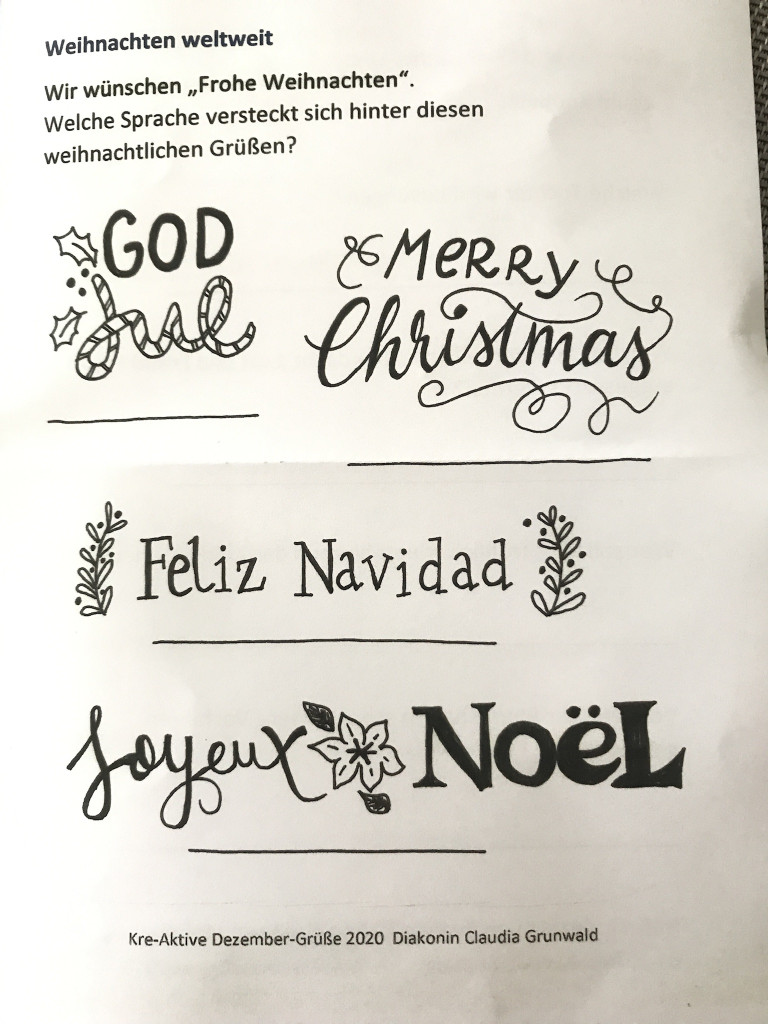 Weihnachten weltweit
Wir wünschen „Frohe Weihnachten“.
Welche Sprache versteckt sich hinter diesen
weihnachtlichen Grüßen?
GOD
Jul
MeRRy
Christmas
Feliz Navidad
Joyeux NoëL
Kre-Aktive Dezember-Grüße 2020 Diakonin Claudia Grunwald